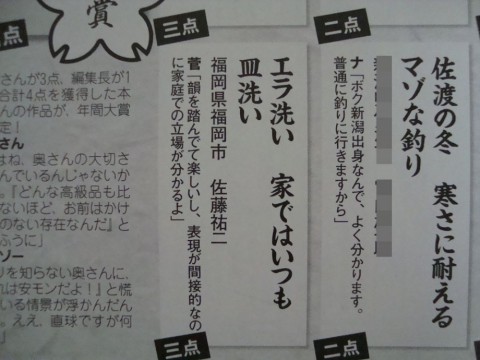 二点
佐渡の冬　寒さに耐える
マゾな釣り
ナ「ボク新潟出身なんで、よく分かります。
普通に釣りに行きますから」
二点
三点
エラ洗い　家ではいつも
皿洗い
福岡県福岡市　佐藤祐二
菅「韻を踏んでて楽しいし、表現が間接的なの
に家庭での立場が分かるよ」
三点
賞
さんが3点、編集長が1
合計4点を獲得した本
んの作品が、年間大賞
定！
さん
はね、奥さんの大切さ
んでいるんじゃないか
。『どんな高級品も比
ないほど、お前はかけ
のない存在なんだ』と
ふうに」
ゾー
リを知らない奥さんに、
れは安モンだよ！』と慌
いる情景が浮かんだん
。ええ、直球ですが何
」